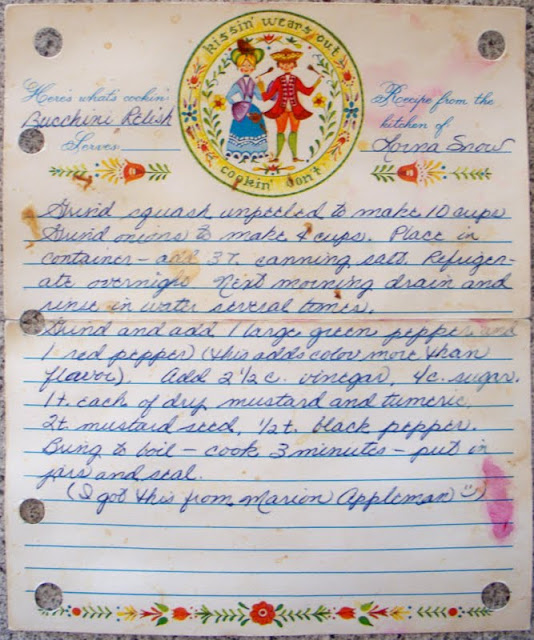 kissin' wears out
cookin' don't
Here's what's cookin'
Zucchini Relish
Serves
Recipe from the
kitchen of
Lorna Snow
Grind squash unpeeled to make 10 cups
Grind onions to make 4 cups. Place in
container - add 3T. canning salt. Refriger-
ate overnight. Next morning drain and
rinse in water several times.
Grind and add 1 large green pepper and
1 red pepper (this adds color more than
flavor). Add 2 1/2 c. vinegar, 4 c. sugar.
1t. each of dry mustard and tumeric.
2t. mustard seed, 1/2 t. black pepper.
Bring to boil - cook 3 minutes - put in
jars and seal.
(I got this from Marion Appleman ☺)